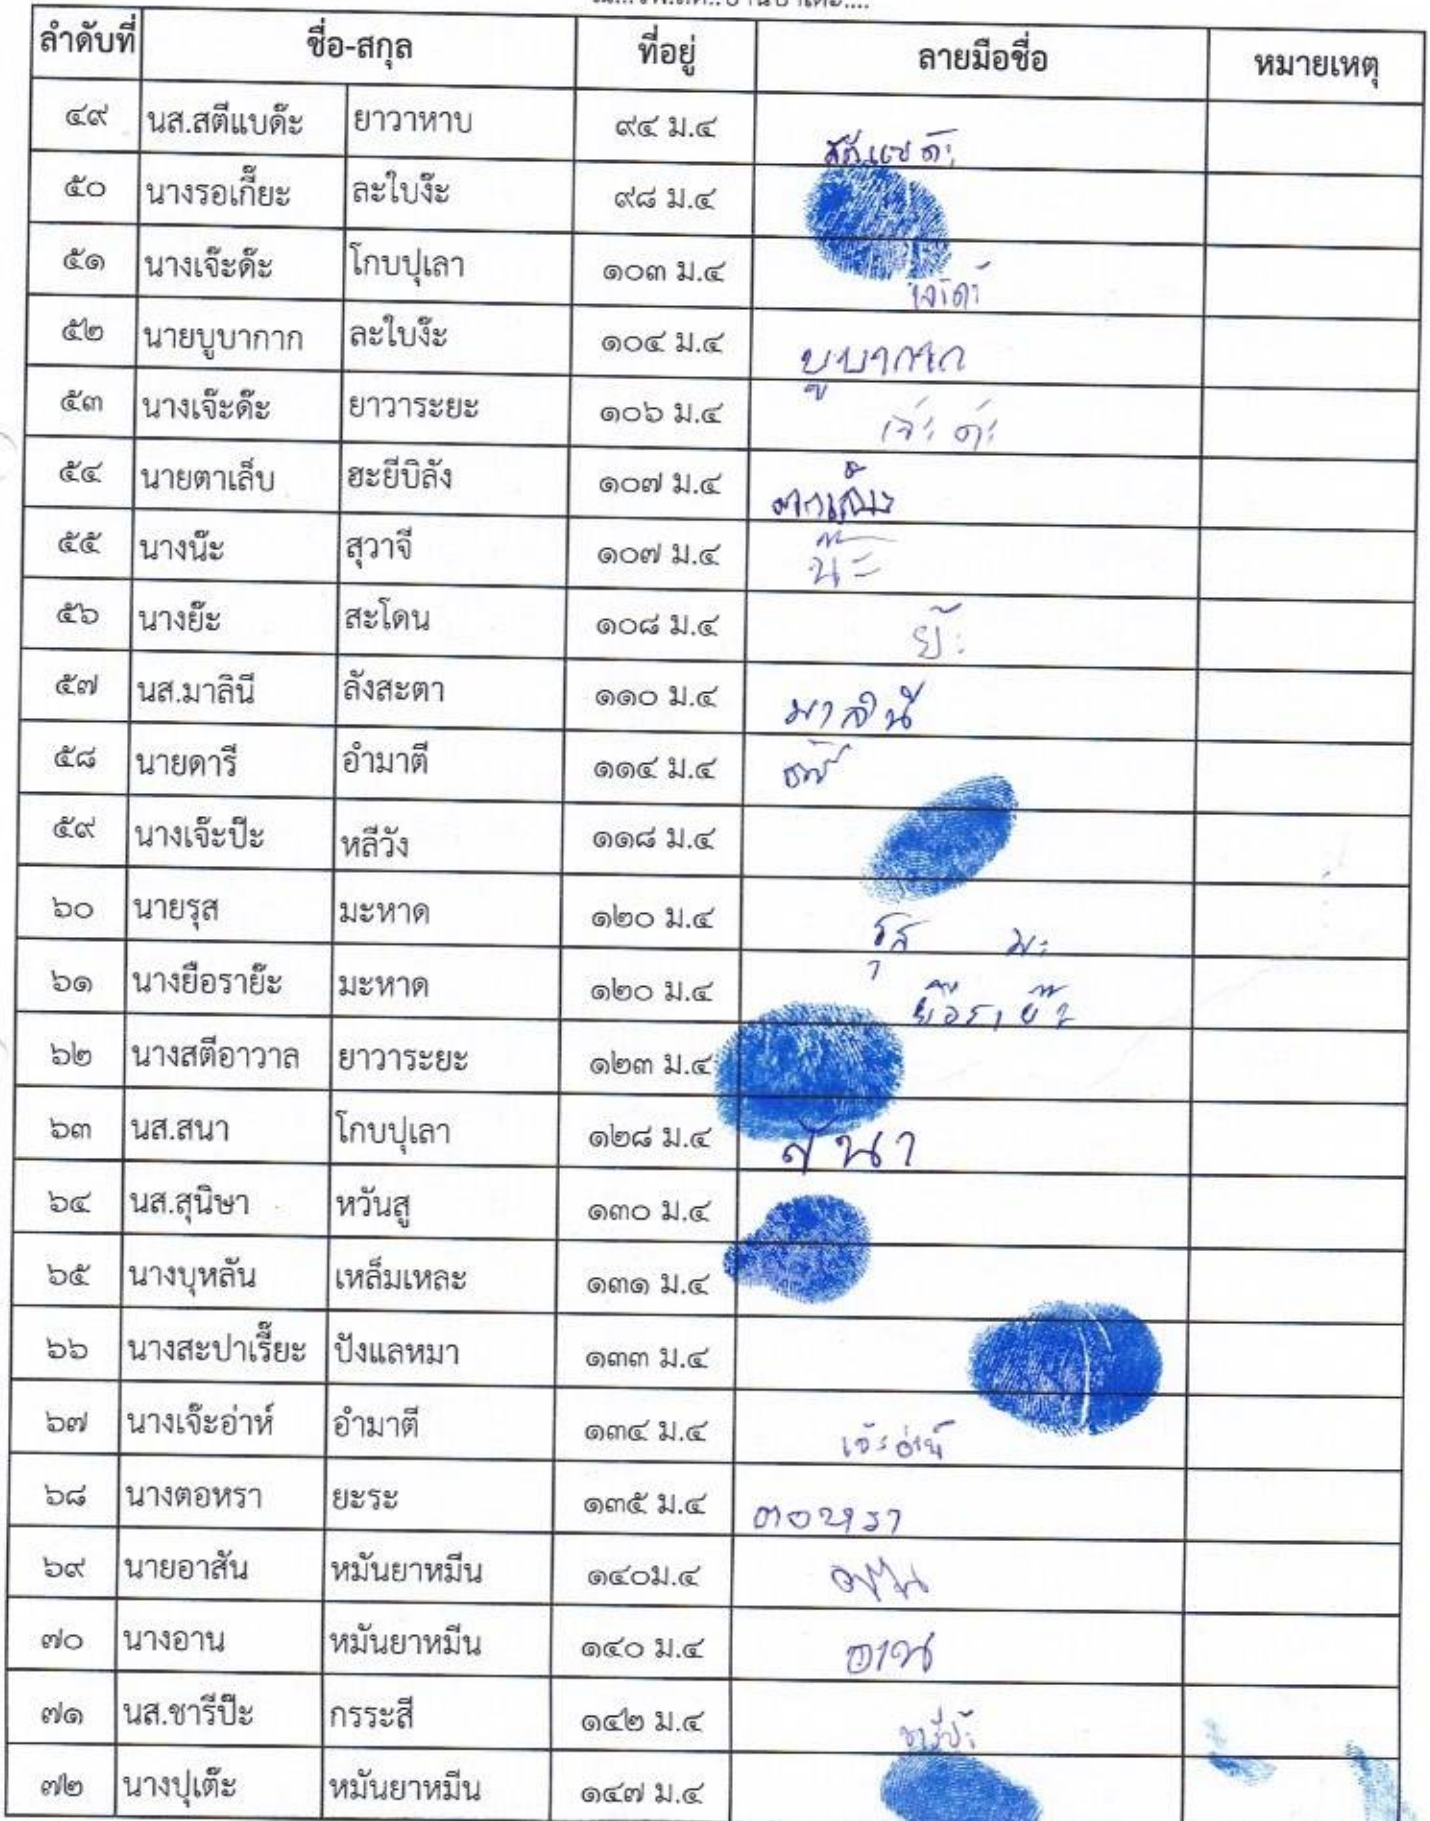 ลำดับที่ ชื่อ-สกุล ที่อยู่ ลายมือชื่อ หมายเหตุ
๔๙ นส.สตีแบด๊ะ ยาวาหาบ ๙๔ ม.๔
๕๐ นางรอเกี๊ยะ ละใบง๊ะ ๙๘ ม.๔
๕๑ นางเจ๊ะด๊ะ โกบปุเลา ๑๐๓ ม.๔
๕๒ นายบูบากาก ละใบง๊ะ ๑๐๔ ม.๔ บูบากาก
๕๓ นางเจ๊ะด๊ะ ยาวาระยะ ๑๐๖ ม.๔
๕๔ นายตาเล็บ ฮะยีบิลัง ๑๐๗ ม.๔
๕๕ นางน๊ะ สุวาจี ๑๐๗ ม.๔ น๊ะ
๕๖ นางย๊ะ สะโดน ๑๐๘ ม.๔
๕๗ นส.มาลินี ลังสะตา ๑๑๐ ม.๔ มาลินี
๕๘ นายดารี อำมาตี ๑๑๔ ม.๔
๕๙ นางเจ๊ะป๊ะ หลีวัง ๑๑๘ ม.๔
๖๐ นายรุส มะหาด ๑๒๐ ม.๔ รุส มะ
๖๑ นางยือราย๊ะ มะหาด ๑๒๐ ม.๔ ยือราย๊ะ
๖๒ นางสตีอาวาล ยาวาระยะ ๑๒๓ ม.๔
๖๓ นส.สนา โกบปุเลา ๑๒๘ ม.๔ สนา
๖๔ นส.สุนิษา หวันสู ๑๓๐ ม.๔
๖๕ นางบุหลัน เหล็มเหละ ๑๓๑ ม.๔
๖๖ นางสะปาเรี๊ยะ ปังแลหมา ๑๓๓ ม.๔
๖๗ นางเจ๊ะอ่าห์ อำมาตี ๑๓๔ ม.๔
๖๘ นางตอหรา ยะระ ๑๓๕ ม.๔ ตอหรา
๖๙ นายอาสัน หมันยาหมีน ๑๔๐ม.๔
๗๐ นางอาน หมันยาหมีน ๑๔๐ ม.๔ อาน
๗๑ นส.ซารีป๊ะ กรระสี ๑๔๒ ม.๔
๗๒ นางปุเต๊ะ หมันยาหมีน ๑๔๗ ม.๔